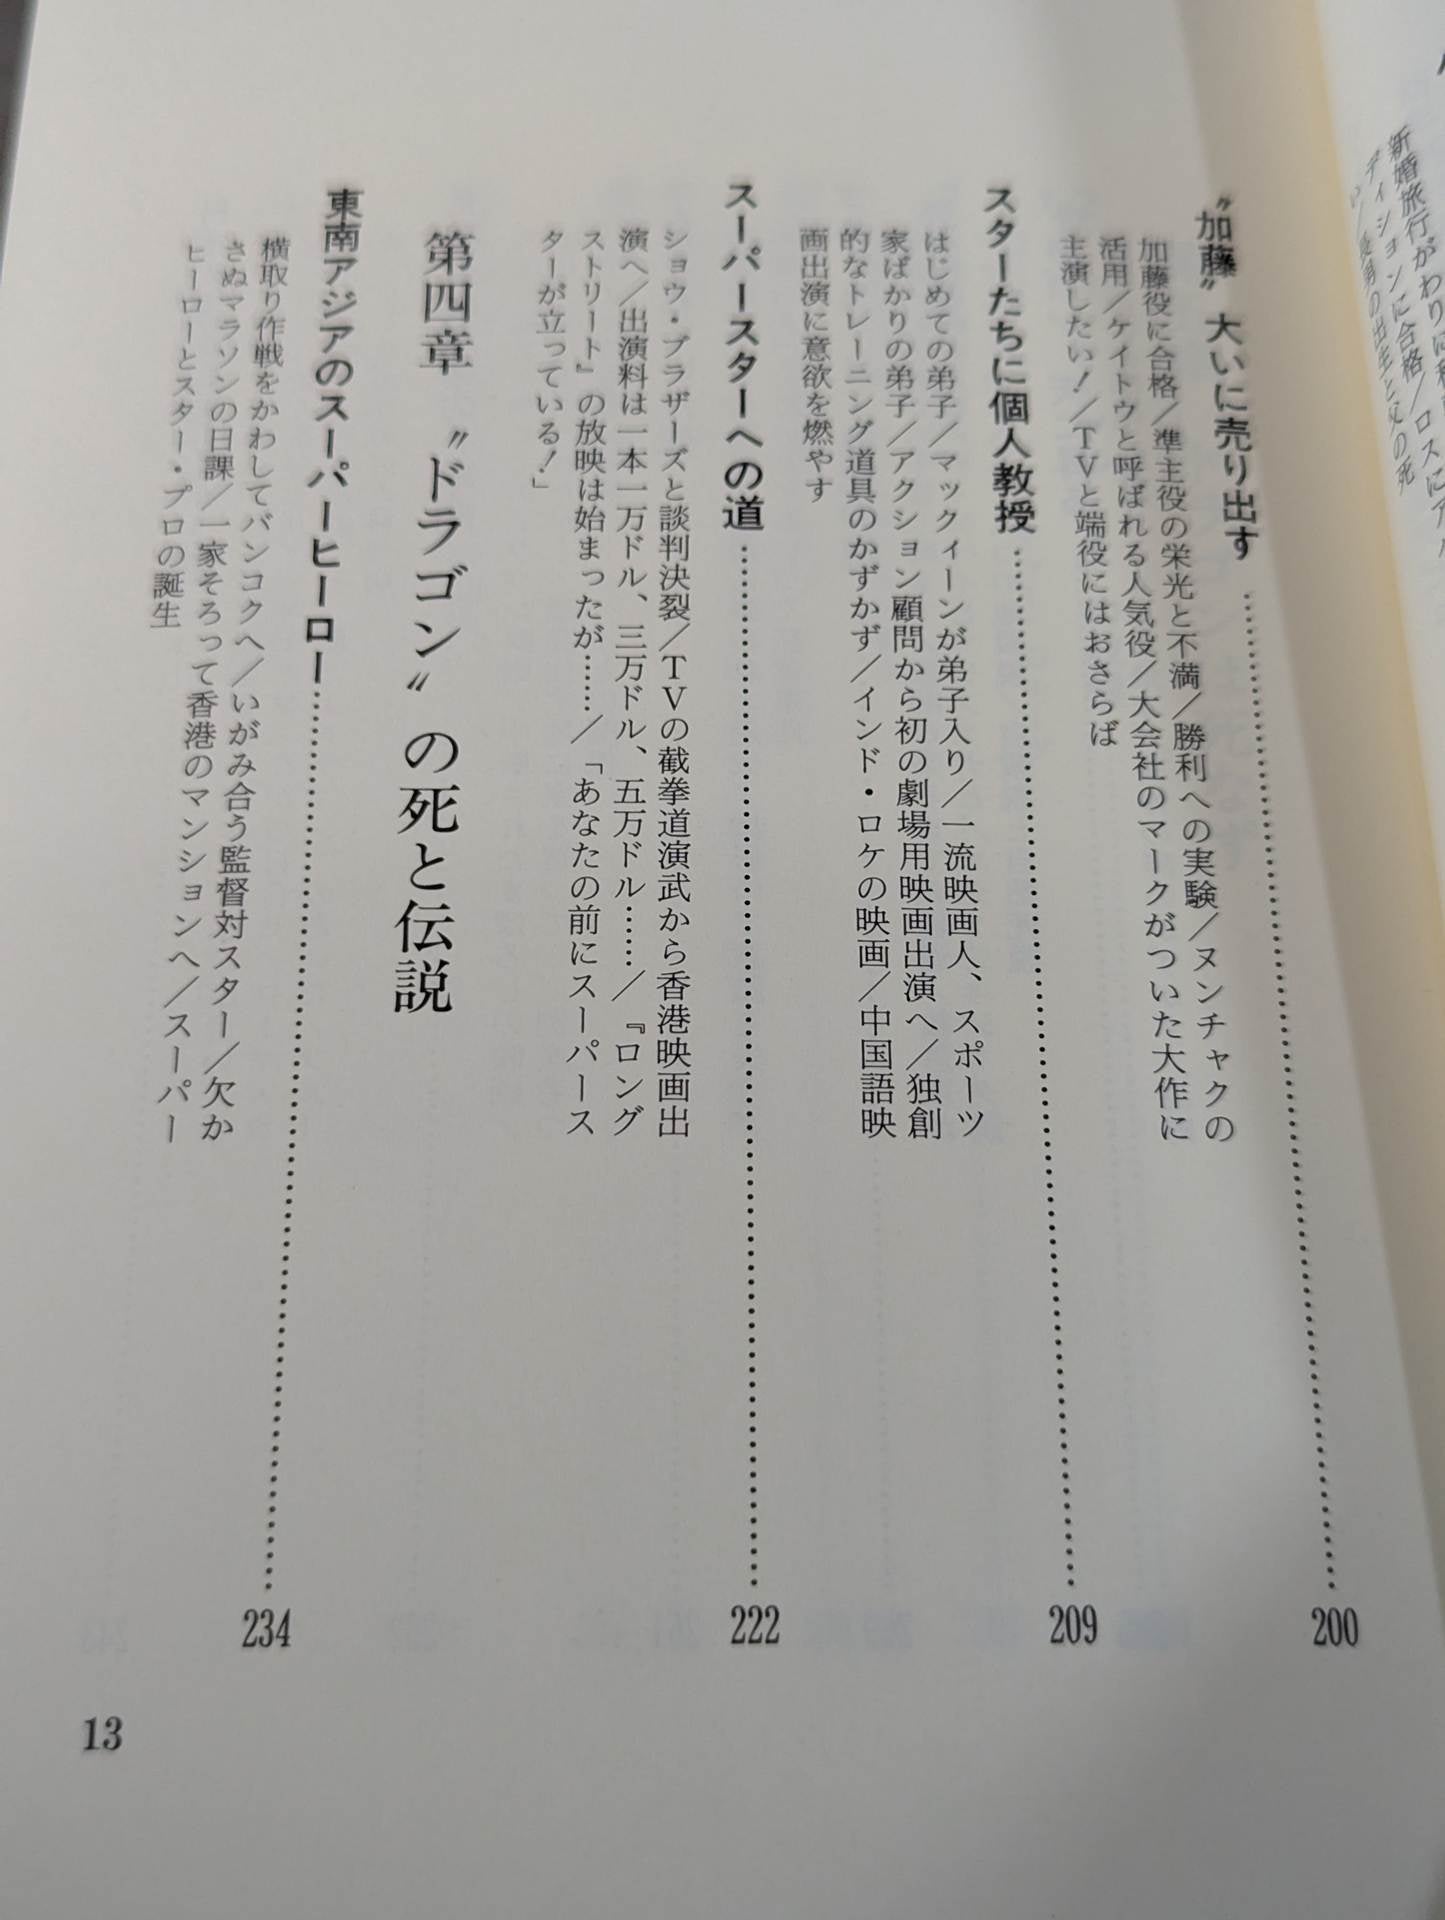 新婚旅行がわりに
ディションに合格／ロスに
長男の出生と父の死
〝加藤〟大いに売り出す……200
加藤役に合格／準主役の栄光と不満／勝利への実験／ヌンチャクの
活用／ケイトウと呼ばれる人気役／大会社のマークがついた大作に
主演したい！／TVと端役にはおさらば
スターたちに個人教授……209
はじめての弟子／マックィーンが弟子入り／一流映画人、スポーツ
家ばかりの弟子／アクション顧問から初の劇場用映画出演へ／独創
的なトレーニング道具のかずかず／インド・ロケの映画／中国語映
画出演に意欲を燃やす
スーパースターへの道……222
ショウ・ブラザーズと談判決裂／TVの截拳道演武から香港映画出
演へ／出演料は一本一万ドル、三万ドル、五万ドル……／『ロング
ストリート』の放映は始まったが……／「あなたの前にスーパース
ターが立っている！」
第四章　〝ドラゴン〟の死と伝説
東南アジアのスーパーヒーロー……234
横取り作戦をかわしてバンコクへ／いがみ合う監督対スター／欠か
さぬマラソンの日課／一家そろって香港のマンションへ／スーパー
ヒーローとスター・プロの誕生
13